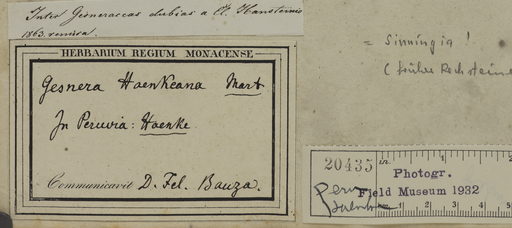 Inter Gesneraceas dubias a Cl. Hansteinio
1863. remissa.
HERBARIUM REGIUM MONACENSE
Gesnera Haenkeana Mart
In Peruvia: Haenke.
Communicavit D. Fel. Bauza.
= Sinningia!
(früher Rechsteine
20435
in. 1
Photogr.
Field Museum 1932
Peru
Haenke
1 2 3 4 5